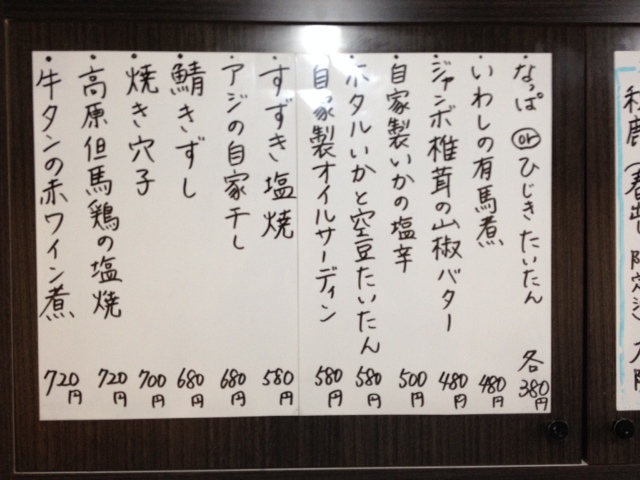 なっぱ or ひじきたいたん 各380円
いわしの有馬煮 480円
ジャンボ椎茸の山椒バター 480円
自家製いかの塩辛 500円
ホタルいかと空豆たいたん 580円
自家製オイルサーディン 580円
すずき塩焼 580円
アジの自家干し 680円
鯖きずし 680円
焼き穴子 700円
高原但馬鶏の塩焼 720円
牛タンの赤ワイン煮 720円